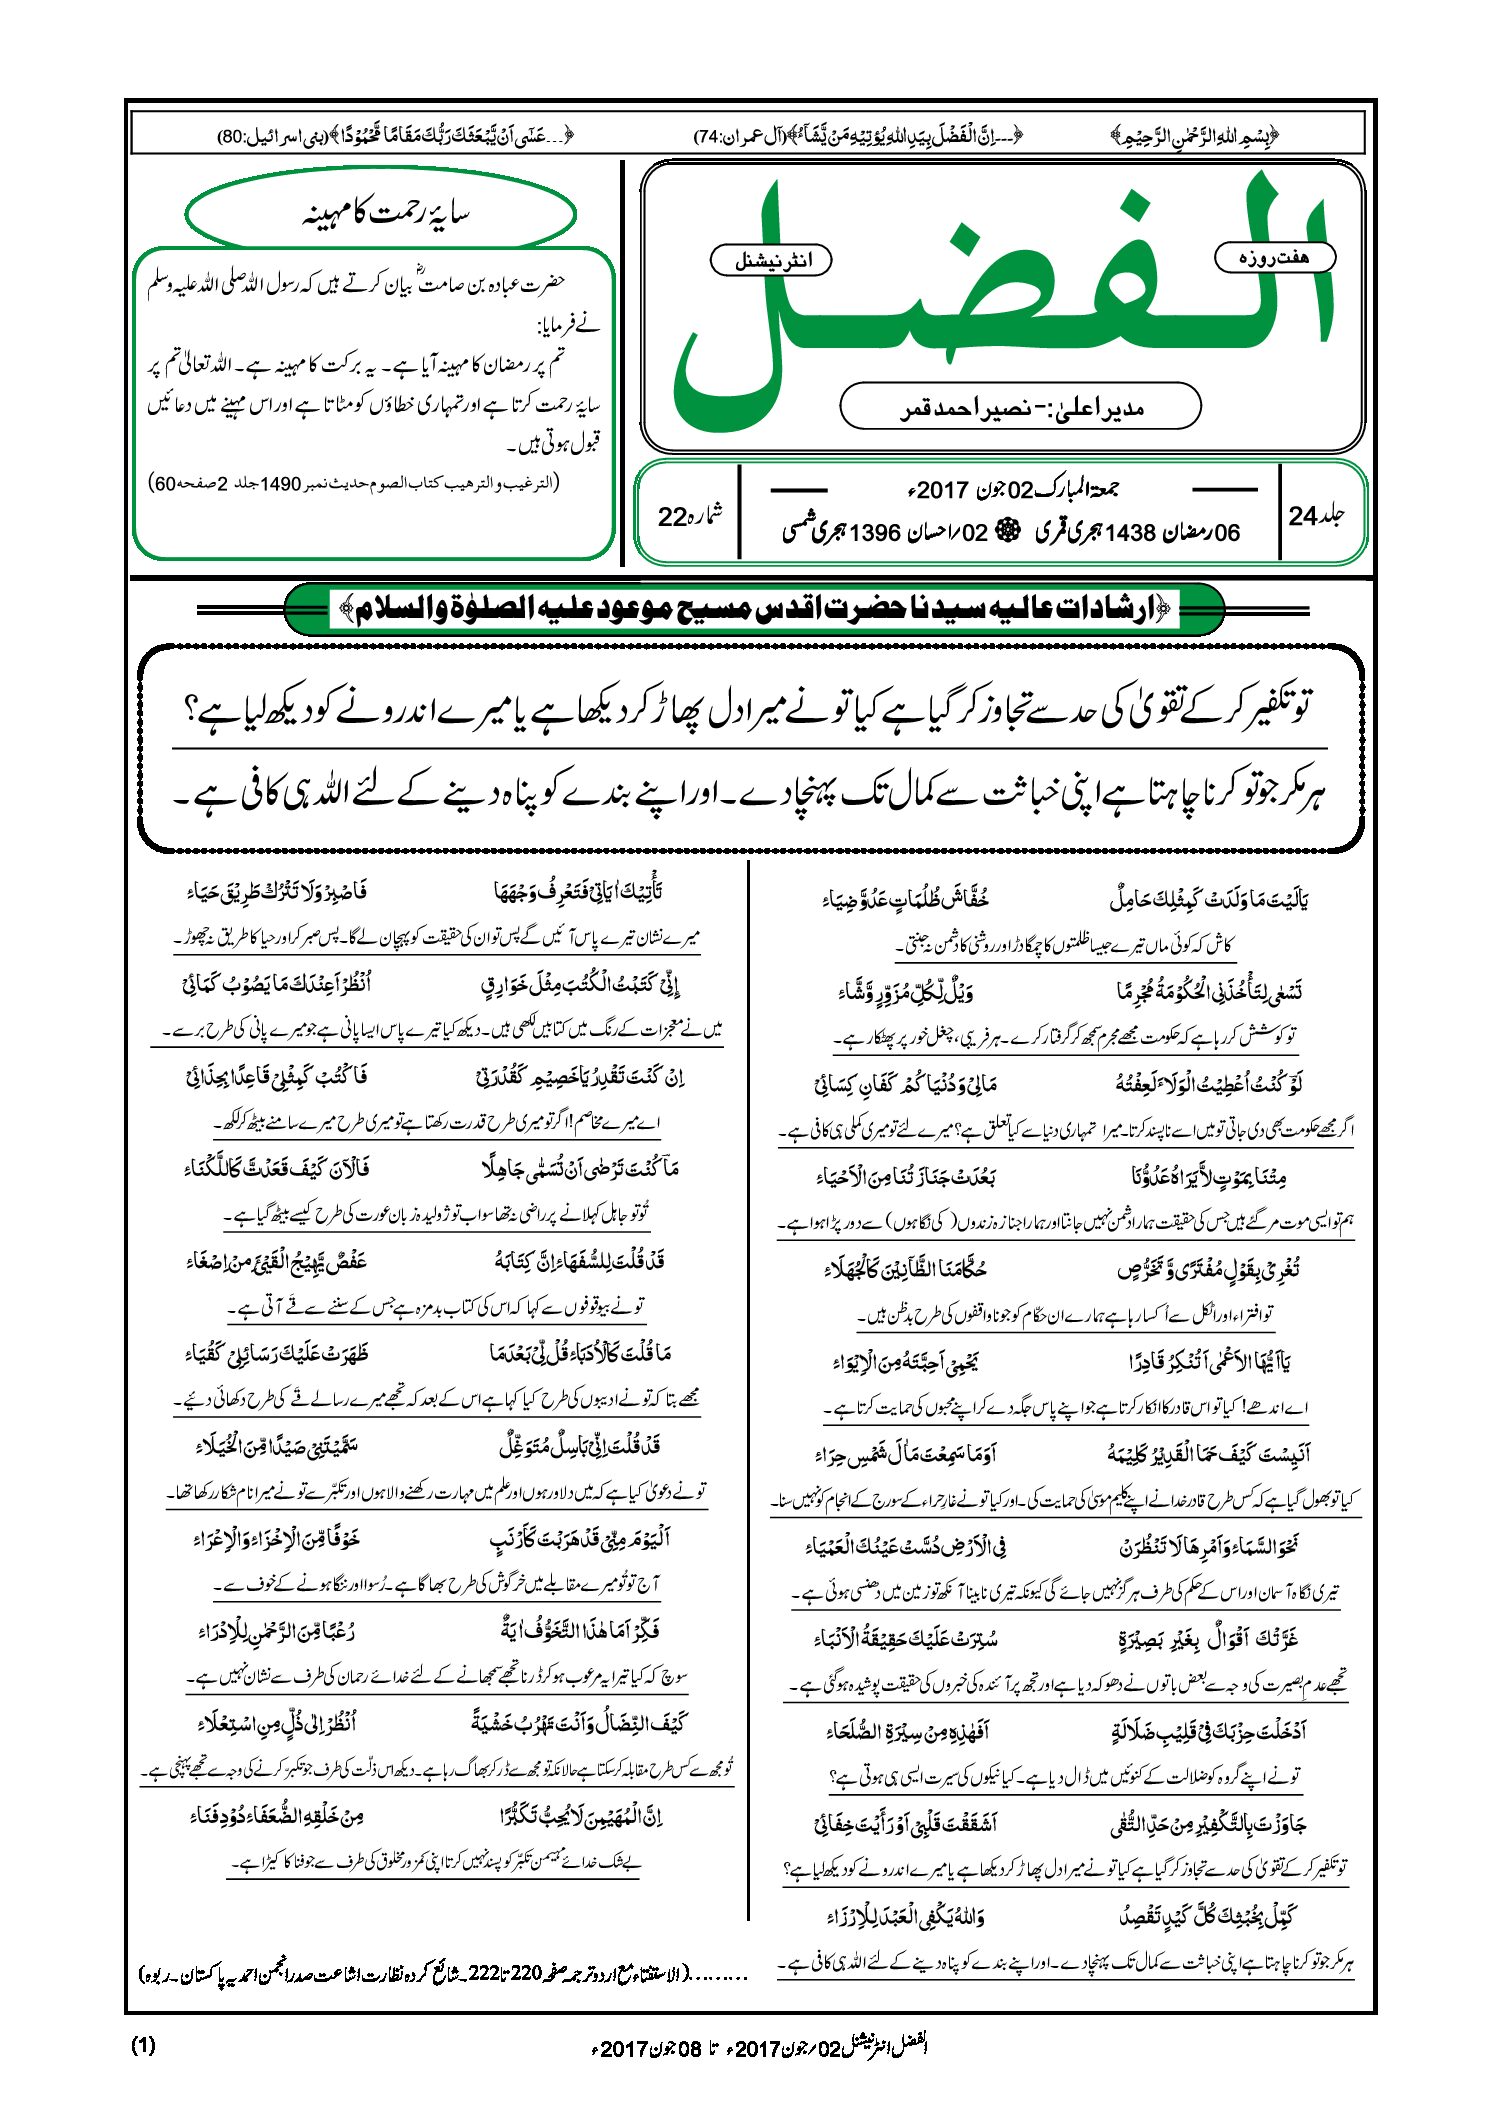 ﴿بِسْمِ اللهِ الرَّحْمٰنِ الرَّحِيْمِ﴾
﴿۔۔۔اِنَّ الْفَضْلَ بِيَدِ اللهِ يُؤْتِيْهِ مَنْ يَّشَآءُ﴾(آل عمران:74)
﴿۔۔۔عَسٰى اَنْ يَّبْعَثَكَ رَبُّكَ مَقَامًا مَّحْمُوْدًا﴾(بنی اسرائیل:80)
الفضل
ہفت روزہ
انٹرنیشنل
مدیر اعلیٰ:- نصیر احمد قمر
جلد 24
جمعۃ المبارک 02 جون 2017ء
06 رمضان 1438 ہجری قمری 02/احسان 1396 ہجری شمسی
شمارہ 22
سایۂ رحمت کا مہینہ
حضرت عبادہ بن صامتؓ بیان کرتے ہیں کہ رسول اللہ صلی اللہ علیہ وسلم
نے فرمایا:
تم پر رمضان کا مہینہ آیا ہے۔ یہ برکت کا مہینہ ہے۔ اللہ تعالیٰ تم پر
سایۂ رحمت کرتا ہے اور تمہاری خطاؤں کو مٹاتا ہے اور اس مہینے میں دعائیں
قبول ہوتی ہیں۔
(الترغیب والترھیب کتاب الصوم حدیث نمبر 1490 جلد 2 صفحہ 60)
﴿ارشادات عالیہ سیدنا حضرت اقدس مسیح موعود علیہ الصلوٰۃ والسلام﴾
تو تکفیر کر کے تقویٰ کی حد سے تجاوز کر گیا ہے کیا تو نے میرا دل پھاڑ کر دیکھا ہے یا میرے اندرونے کو دیکھ لیا ہے؟
ہر مکر جو تو کرنا چاہتا ہے اپنی خباثت سے کمال تک پہنچا دے۔ اور اپنے بندے کو پناہ دینے کے لئے اللہ ہی کافی ہے۔
يَالَيْتَ مَا وَلَدَتْ كَمِثْلِكَ حَامِلٌ خُفَّاشَ ظُلُمَاتٍ عَدُوَّ ضِيَاءِ
کاش کہ کوئی ماں تیرے جیسا ظلمتوں کا چمگادڑ اور روشنی کا دشمن نہ جنتی۔
تَسْعٰى لِتَأْخُذَنِى الْحُكُوْمَةُ مُجْرِمًا وَيْلٌ لِّكُلِّ مُزَوِّرٍ وَّشَّاءِ
تو کوشش کر رہا ہے کہ حکومت مجھے مجرم سمجھ کر گرفتار کرے۔ ہر فریبی، چغل خور پر پھٹکار ہے۔
لَوْ كُنْتُ اُعْطِيْتُ الْوَلَاءَ لَعِفْتُهُ مَالِىْ وَدُنْيَاكُمْ كَفَانِ كِسَائِىْ
اگر مجھے حکومت بھی دی جاتی تو میں اسے ناپسند کرتا۔ میرا تمہاری دنیا سے کیا تعلق ہے؟ میرے لئے تو میری کملی ہی کافی ہے۔
مِتْنَا بِمَوْتٍ لَّا يَرَاهُ عَدُوُّنَا بَعُدَتْ جَنَازَتُنَا مِنَ الْاَحْيَاءِ
ہم تو ایسی موت مر گئے ہیں جس کی حقیقت ہمارا دشمن نہیں جانتا اور ہمارا جنازہ زندوں (کی نگاہوں) سے دور پڑا ہوا ہے۔
تُغْرِىْ بِقَوْلٍ مُفْتَرًى وَّتَخَرُّصٍ حُكَّامَنَا الظَّانِيْنَ كَالْجُهَلَاءِ
تو افتراء اور اٹکل سے اُکسا رہا ہے ہمارے ان حکّام کو جو ناواقفوں کی طرح بدظن ہیں۔
يَاَيُّهَا الْاَعْمٰى اَتُنْكِرُ قَادِرًا يَحْمِىْ اَحِبَّتَهُ مِنَ الْاِيْوَاءِ
اے اندھے! کیا تو اس قادر کا انکار کرتا ہے جو اپنے پاس جگہ دے کر اپنے محبوں کی حمایت کرتا ہے۔
اَنَسِيْتَ كَيْفَ حَمَا الْقَدِيْرُ كَلِيْمَهُ اَوَمَا سَمِعْتَ مَآلَ شَمْسِ حِرَاءِ
کیا تو بھول گیا ہے کہ کس طرح قادر خدا نے اپنے کلیم موسیٰ کی حمایت کی۔ اور کیا تو نے غارِ حراء کے سورج کے انجام کو نہیں سنا۔
نَحْوَ السَّمَاءِ وَاَمْرِهَا لَا تَنْظُرَنْ فِى الْاَرْضِ دُسَّتْ عَيْنُكَ الْعَمْيَاءِ
تیری نگاہ آسمان اور اس کے حکم کی طرف ہرگز نہیں جائے گی کیونکہ تیری نابینا آنکھ تو زمین میں دھنسی ہوئی ہے۔
غَرَّتْكَ اَقْوَالٌ بِغَيْرِ بَصِيْرَةٍ سُتِرَتْ عَلَيْكَ حَقِيْقَةُ الْاَنْبَاءِ
تجھے عدم بصیرت کی وجہ سے بعض باتوں نے دھوکہ دیا ہے اور تجھ پر آئندہ کی خبروں کی حقیقت پوشیدہ ہوگئی ہے۔
اَدْخَلْتَ حِزْبَكَ فِىْ قَلِيْبِ ضَلَالَةٍ اَفَهٰذِهِ مِنْ سِيْرَةِ الصُّلَحَاءِ
تو نے اپنے گروہ کو ضلالت کے کنوئیں میں ڈال دیا ہے۔ کیا نیکوں کی سیرت ایسی ہی ہوتی ہے؟
جَاوَزْتَ بِالتَّكْفِيْرِ مِنْ حَدِّ التُّقٰى اَشَقَقْتَ قَلْبِىْ اَوْ رَأَيْتَ خِفَائِىْ
تو تکفیر کر کے تقویٰ کی حد سے تجاوز کر گیا ہے کیا تو نے میرا دل پھاڑ کر دیکھا ہے یا میرے اندرونے کو دیکھ لیا ہے؟
كَمِّلْ بِخُبْثِكَ كُلَّ كَيْدٍ تَقْصِدُ وَاللهُ يَكْفِى الْعَبْدَ لِلْاِرْزَاءِ
ہر مکر جو تو کرنا چاہتا ہے اپنی خباثت سے کمال تک پہنچا دے۔ اور اپنے بندے کو پناہ دینے کے لئے اللہ ہی کافی ہے۔
تَأْتِيْكَ اٰيَاتِىْ فَتَعْرِفُ وَجْهَهَا فَاصْبِرْ وَلَا تَتْرُكْ طَرِيْقَ حَيَاءِ
میرے نشان تیرے پاس آئیں گے پس تو ان کی حقیقت کو پہچان لے گا۔ پس صبر کر اور حیا کا طریق نہ چھوڑ۔
اِنِّىْ كَتَبْتُ الْكُتُبَ مِثْلَ خَوَارِقٍ اُنْظُرْ اَعِنْدَكَ مَا يَصُوْبُ كَمَائِىْ
میں نے معجزات کے رنگ میں کتابیں لکھی ہیں۔ دیکھ کیا تیرے پاس ایسا پانی ہے جو میرے پانی کی طرح برسے۔
اِنْ كُنْتَ تَقْدِرُ يَا خَصِيْمِ كَقُدْرَتِىْ فَاكْتُبْ كَمِثْلِىْ قَاعِدًا بِحِذَائِىْ
اے میرے مخاصم! اگر تو میری طرح قدرت رکھتا ہے تو میری طرح میرے سامنے بیٹھ کر لکھ۔
مَا كُنْتَ تَرْضٰى اَنْ تُسَمّٰى جَاهِلًا فَالْآنَ كَيْفَ قَعَدْتَّ كَاللَّكْنَاءِ
تُو تو جاہل کہلانے پر راضی نہ تھا سو اب تو ژولیدہ زبان عورت کی طرح کیسے بیٹھ گیا ہے۔
قَدْ قُلْتَ لِلسُّفَهَاءِ اِنَّ كِتَابَهُ عَفْصٌ يَّهِيْجُ الْقَيْئَ مِنْ اِصْغَاءِ
تو نے بیوقوفوں سے کہا کہ اس کی کتاب بدمزہ ہے جس کے سننے سے قے آتی ہے۔
مَا قُلْتَ كَالْاُدَبَاءِ قُلْ لِّىْ بَعْدَمَا ظَهَرَتْ عَلَيْكَ رَسَائِلِىْ كَقُيَاءِ
مجھے بتا کہ تو نے ادیبوں کی طرح کیا کہا ہے اس کے بعد کہ تجھے میرے رسالے قے کی طرح دکھائی دیئے۔
قَدْ قُلْتَ اِنِّىْ بَاسِلٌ مُتَوَغِّلٌ سَمَّيْتَنِىْ صَيْدًا مِّنَ الْخُيَلَاءِ
تو نے دعویٰ کیا ہے کہ میں دلاور ہوں اور علم میں مہارت رکھنے والا ہوں اور تکبّر سے تو نے میرا نام شکار رکھا تھا۔
اَلْيَوْمَ مِنِّىْ قَدْ هَرَبْتَ كَأَرْنَبٍ خَوْفًا مِّنَ الْاِخْزَاءِ وَالْاِعْرَاءِ
آج تو تُو میرے مقابلے میں خرگوش کی طرح بھاگا ہے۔ رُسوا اور ننگا ہونے کے خوف سے۔
فَكِّرْ اَمَا هٰذَا التَّخَوُّفُ اٰيَةٌ رُعْبًا مِّنَ الرَّحْمٰنِ لِلْاِدْرَاءِ
سوچ کہ کیا تیرا یہ مرعوب ہوکر ڈرنا تجھے سمجھانے کے لئے خدائے رحمان کی طرف سے نشان نہیں ہے۔
كَيْفَ النِّضَالُ وَاَنْتَ تَهْرُبُ خَشْيَةً اُنْظُرْ اِلٰى ذُلٍّ مِنِ اسْتِعْلَاءِ
تُو مجھ سے کس طرح مقابلہ کر سکتا ہے حالانکہ تو مجھ سے ڈر کر بھاگ رہا ہے۔ دیکھ اس ذلّت کی طرف جو تکبر کرنے کی وجہ سے تجھے پہنچی ہے۔
اِنَّ الْمُهَيْمِنَ لَا يُحِبُّ تَكَبُّرًا مِنْ خَلْقِهِ الضُّعَفَاءِ دُوْدِ فَنَاءِ
بے شک خدائے مہیمن تکبّر کو پسند نہیں کرتا اپنی کمزور مخلوق کی طرف سے جو فنا کا کیڑا ہے۔
.........(الاستفتاء مع اردو ترجمہ صفحہ 220 تا 222۔ شائع کردہ نظارت اشاعت صدر انجمن احمدیہ پاکستان۔ ربوہ)
الفضل انٹرنیشنل 02/جون 2017ء تا 08 جون 2017ء
(1)